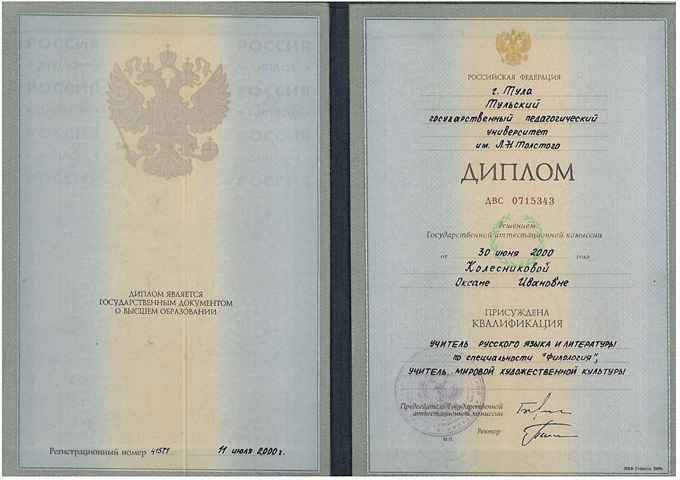 ДИПЛОМ ЯВЛЯЕТСЯ
ГОСУДАРСТВЕННЫМ ДОКУМЕНТОМ
О ВЫСШЕМ ОБРАЗОВАНИИ
Регистрационный номер 11 июля 2000 г.
РОССИЙСКАЯ ФЕДЕРАЦИЯ
г. Тула
Тульский
государственный педагогический
университет
им. Л.Н.Толстого
ДИПЛОМ
ДВС 0715343
Решением
Государственной аттестационной комиссии
от 30 июня 2000 года
Колесниковой
Оксане Ивановне
ПРИСУЖДЕНА
КВАЛИФИКАЦИЯ
УЧИТЕЛЬ РУССКОГО ЯЗЫКА И ЛИТЕРАТУРЫ
по специальности "Филология",
УЧИТЕЛЬ МИРОВОЙ ХУДОЖЕСТВЕННОЙ КУЛЬТУРЫ
Председатель Государственной
аттестационной комиссии
Ректор
М.П.